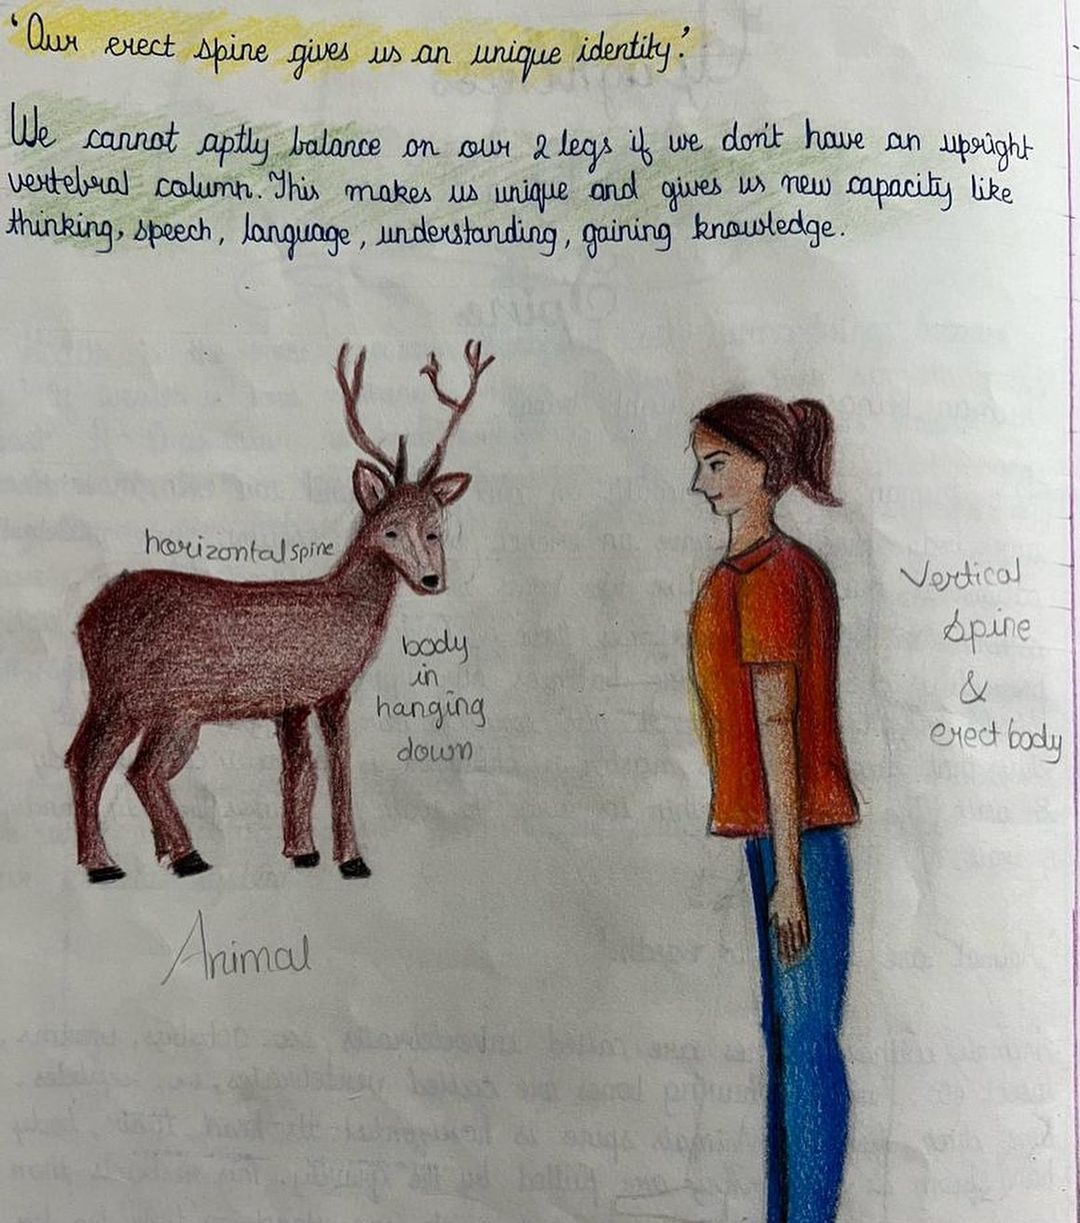 'Our erect spine gives us an unique identity.'
We cannot aptly balance on our 2 legs if we don't have an upright
vertebral column. This makes us unique and gives us new capacity like
thinking, speech, language, understanding, gaining knowledge.
horizontal spine
body
in
hanging
down
Animal
Vertical
spine
&
erect body